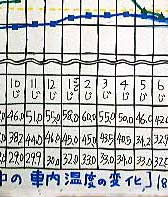 10じ 11じ 12じ 1じ 2じ 3じ 4じ 5じ 6じ
46.0 51.0 55.0 58.0 60.0 55.0 50.0 46.0
38.2 44.0 46.0 45.0 45.0 43.5 40.5 34.2 32.9
29.0 29.9 30.0 32.0 33.0 33.0 34.0 33.0 32.5
中の車内温度の変化】(8